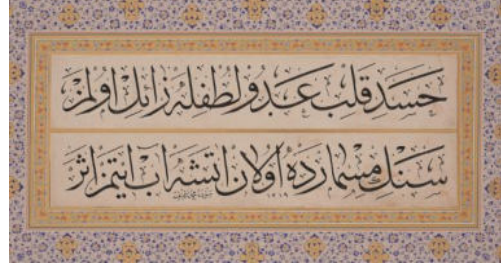 حسد قلب عدو لطفله زائل اولمز
سنك مسمارده اولان اتشه آب ايتمز اثر
١٢١٩